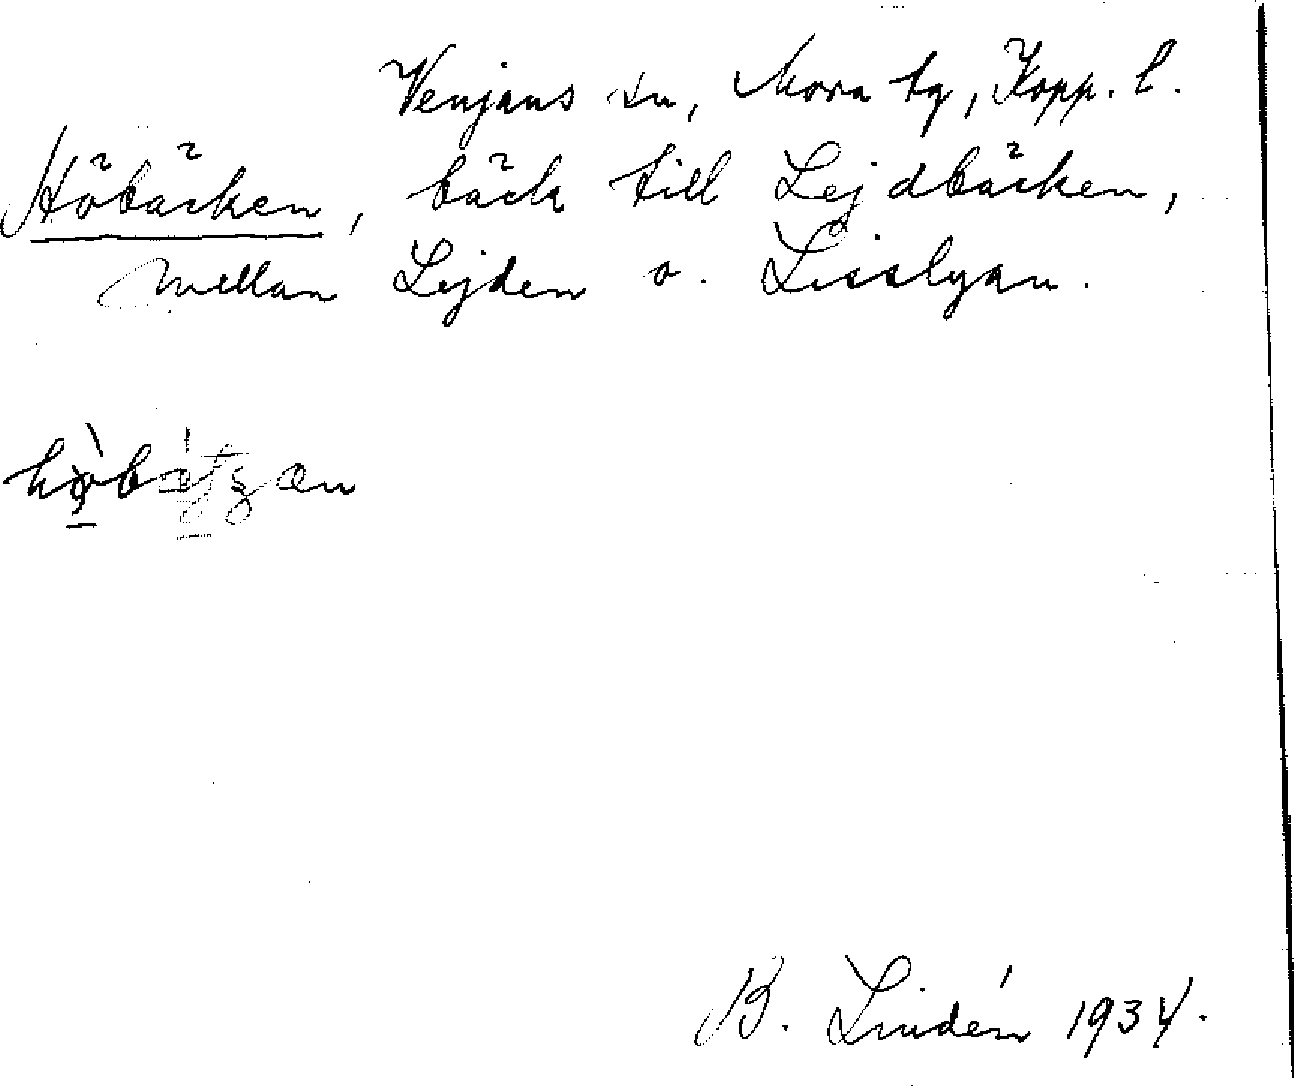 Venjans sn, Mora tg, Kopp. l.
Höbäcken, bäck till Lejdbäcken,
mellan Lejden o. Lisslyan.
B. Lindén 1934.